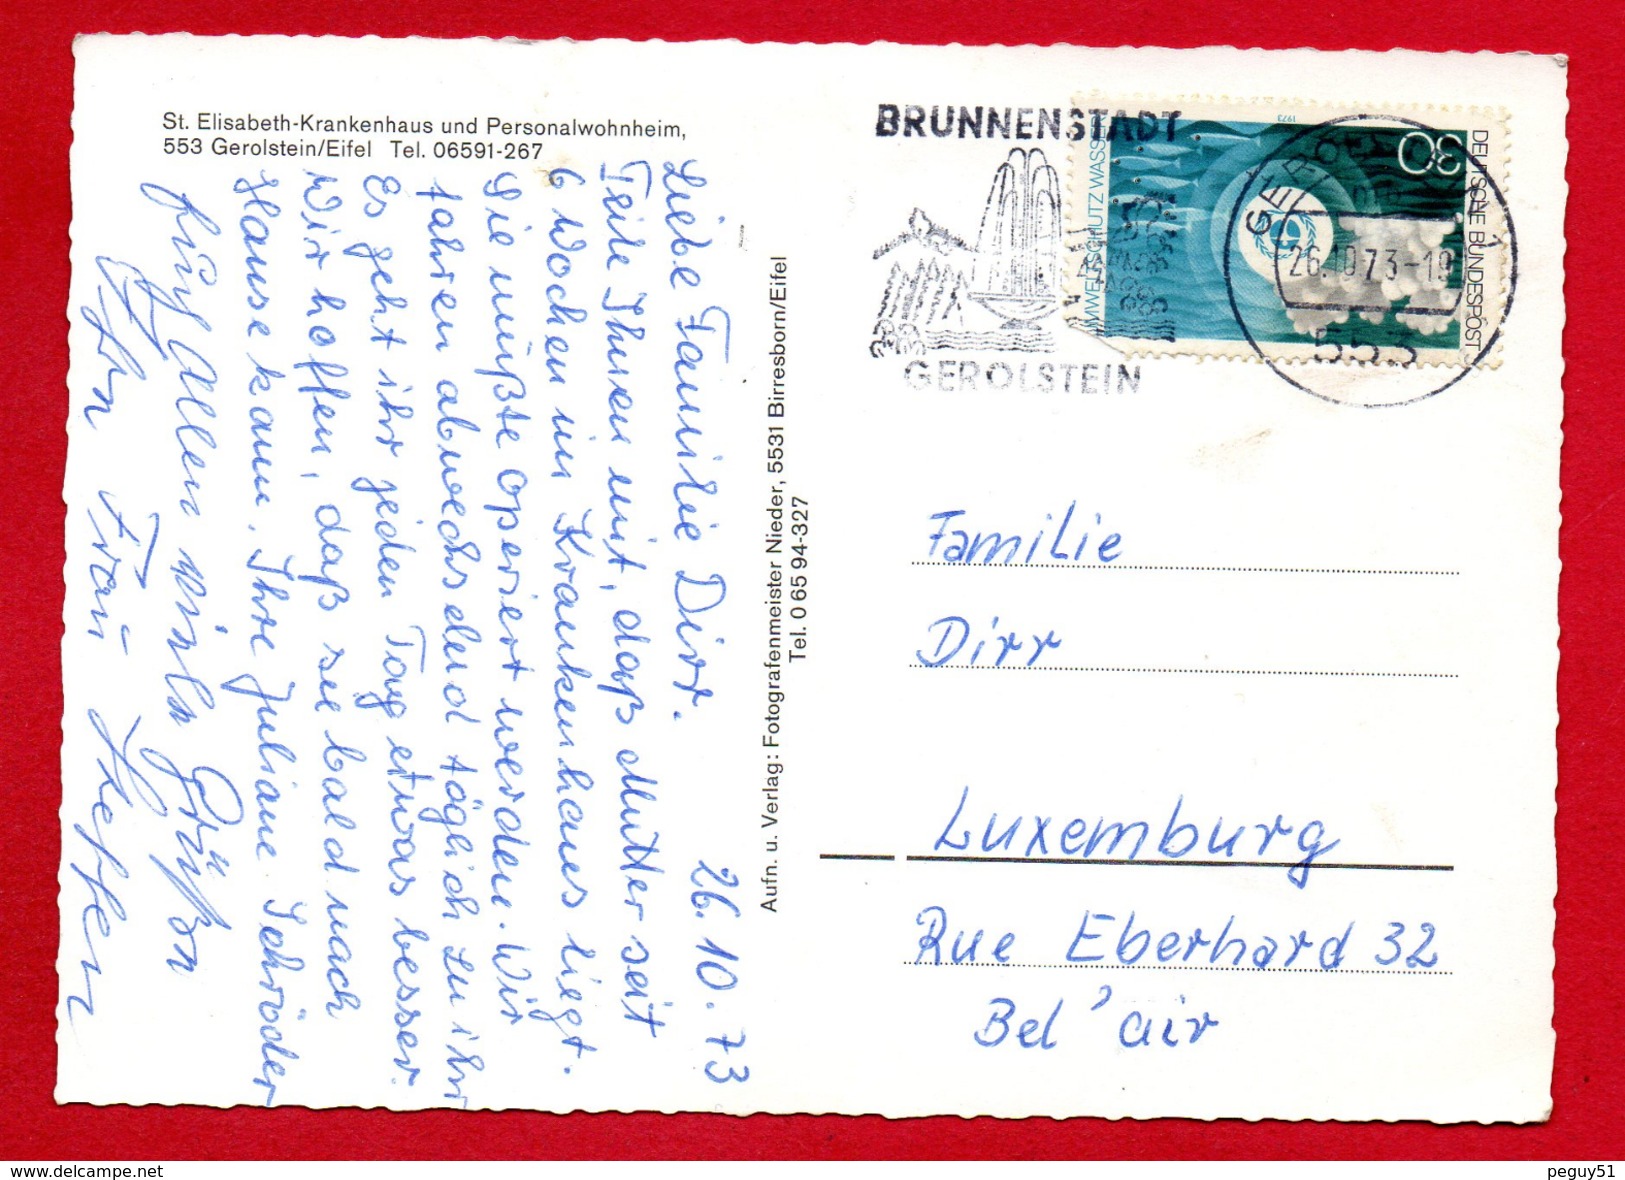 St. Elisabeth-Krankenhaus und Personalwohnheim,
553 Gerolstein/Eifel Tel. 06591-267
26.10.73
Liebe Familie Dirr.
Teile Ihnen mit, daß Mutter seit
6 Wochen im Krankenhaus liegt.
Sie mußte operiert werden. Wir
fahren abwechselnd täglich zu ihr
Es geht ihr jeden Tag etwas besser.
Wir hoffen, daß sie bald nach
Hause kann. Ihre Juliane Schröder
Euch Allen viele Grüße
von Frau Steffen
Aufn. u. Verlag: Fotografenmeister Nieder, 5531 Birresborn/Eifel
Tel. 0 65 94-327
BRUNNENSTADT
GEROLSTEIN
GEROLSTEIN 1
26.10.73-19
553
DEUTSCHE BUNDESPOST
30
1973
UMWELTSCHUTZ WASSER
Familie
Dirr
Luxemburg
Rue Eberhard 32
Bel'air
delcampe.net
peguy51